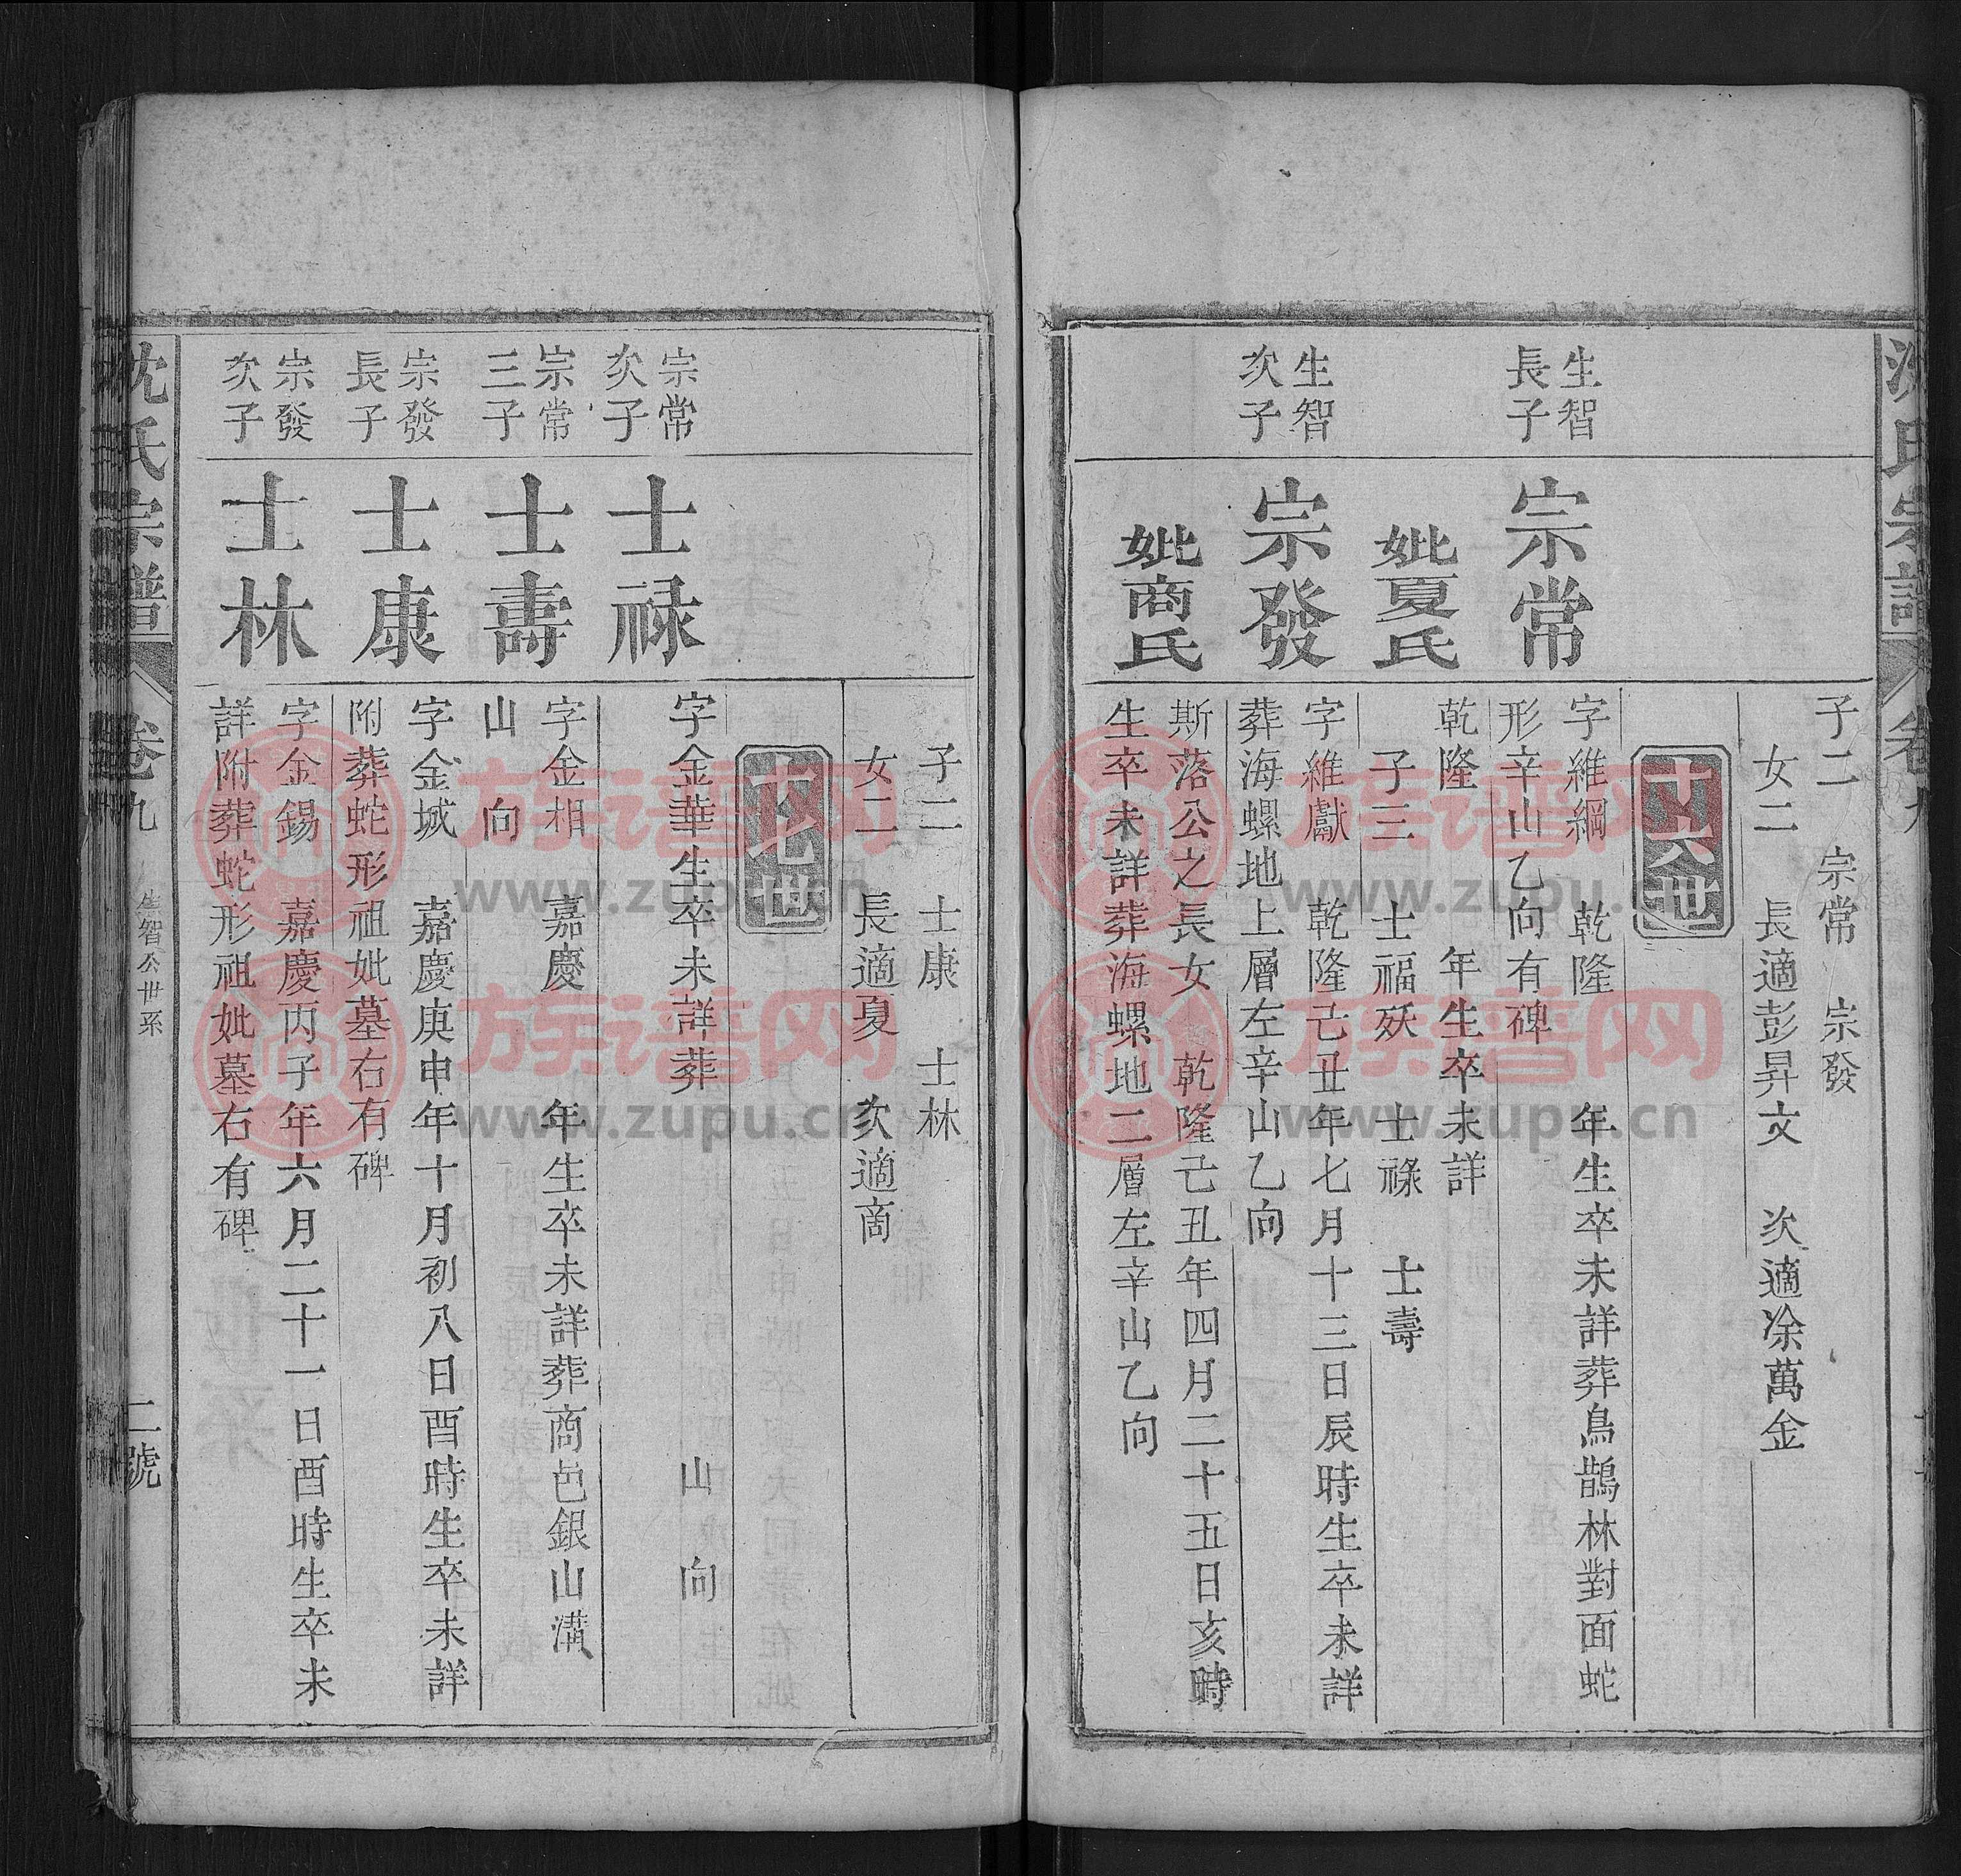 沈氏宗譜 卷九
子二 宗常 宗發
女二 長適彭昇文 次適凃萬金
十六世
生智
長子
宗常
字維綱 乾隆 年生卒未詳葬鳥鵲林對面蛇
形辛山乙向有碑
妣夏氏
乾隆 年生卒未詳
子三 士福殀 士祿 士壽
生智
次子
宗發
字維獻 乾隆己丑年七月十三日辰時生卒未詳
葬海螺地上層左辛山乙向
妣商氏
斯落公之長女 乾隆己丑年四月二十五日亥時
生卒未詳葬海螺地二層左辛山乙向
子二 士康 士林
女二 長適夏 次適商
十七世
宗常
次子
士祿
字金華生卒未詳葬 山 向
宗常
三子
士壽
字金相 嘉慶 年生卒未詳葬商邑銀山溝
山 向
宗發
長子
士康
字金城 嘉慶庚申年十月初八日酉時生卒未詳
附葬蛇形祖妣墓右有碑
宗發
次子
士林
字金錫 嘉慶丙子年六月二十一日酉時生卒未
詳附葬蛇形祖妣墓右有碑
沈氏宗譜 卷九 生智公世系 二號
族谱网
www.zupu.cn
族谱网
www.zupu.cn
族谱网
www.zupu.cn
族谱网
www.zupu.cn